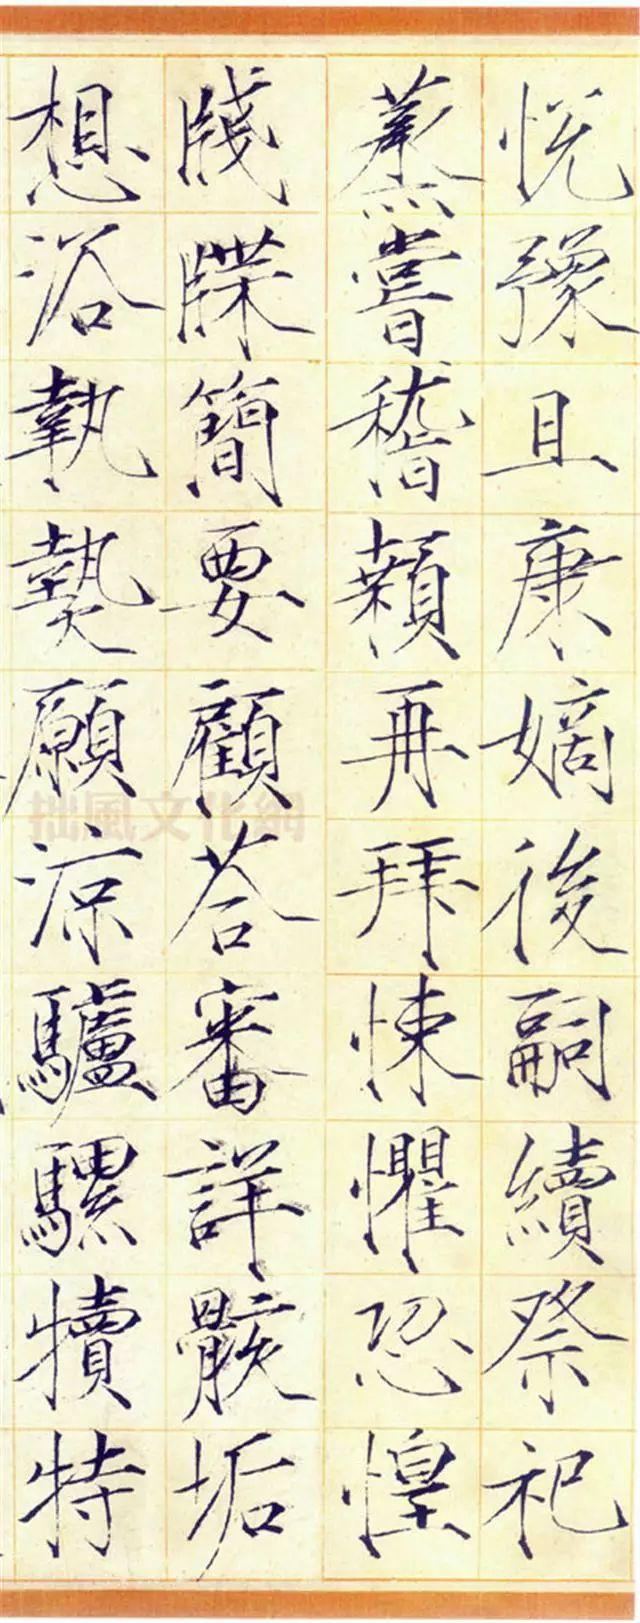 悦豫且康嫡後嗣續祭祀
蒸嘗稽顙再拜悚懼恐惶
牋牒簡要顧荅審詳骸垢
想浴執熱願涼驢騾犢特
拙風文化網